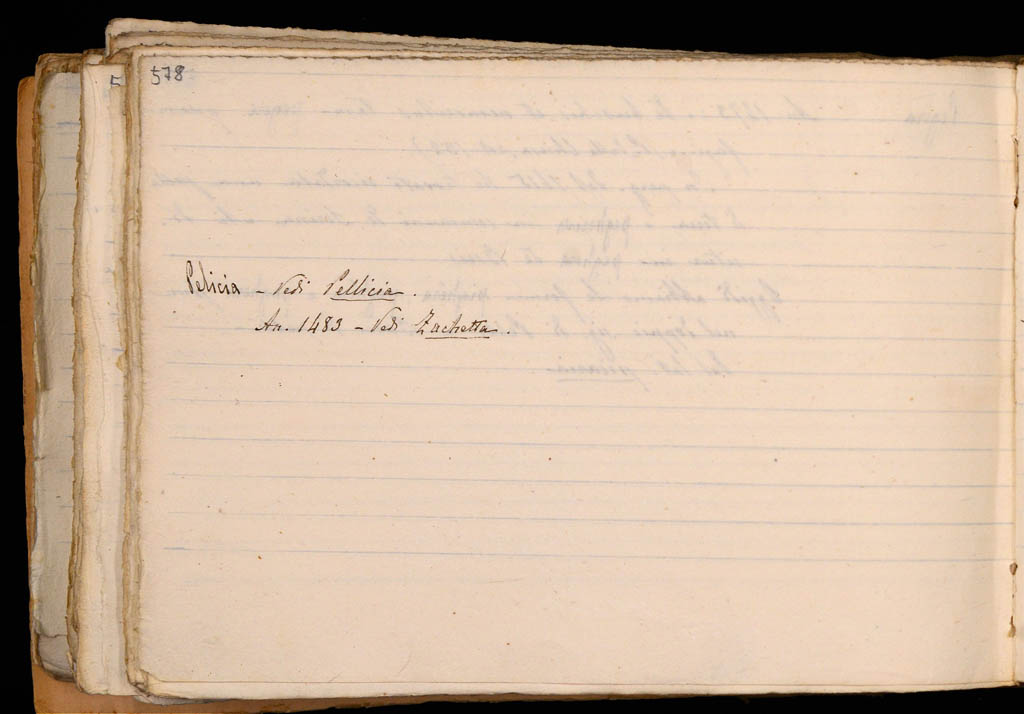 578
Pelicia - Vedi Pellicia.
An. 1483 - Vedi Zachetta.